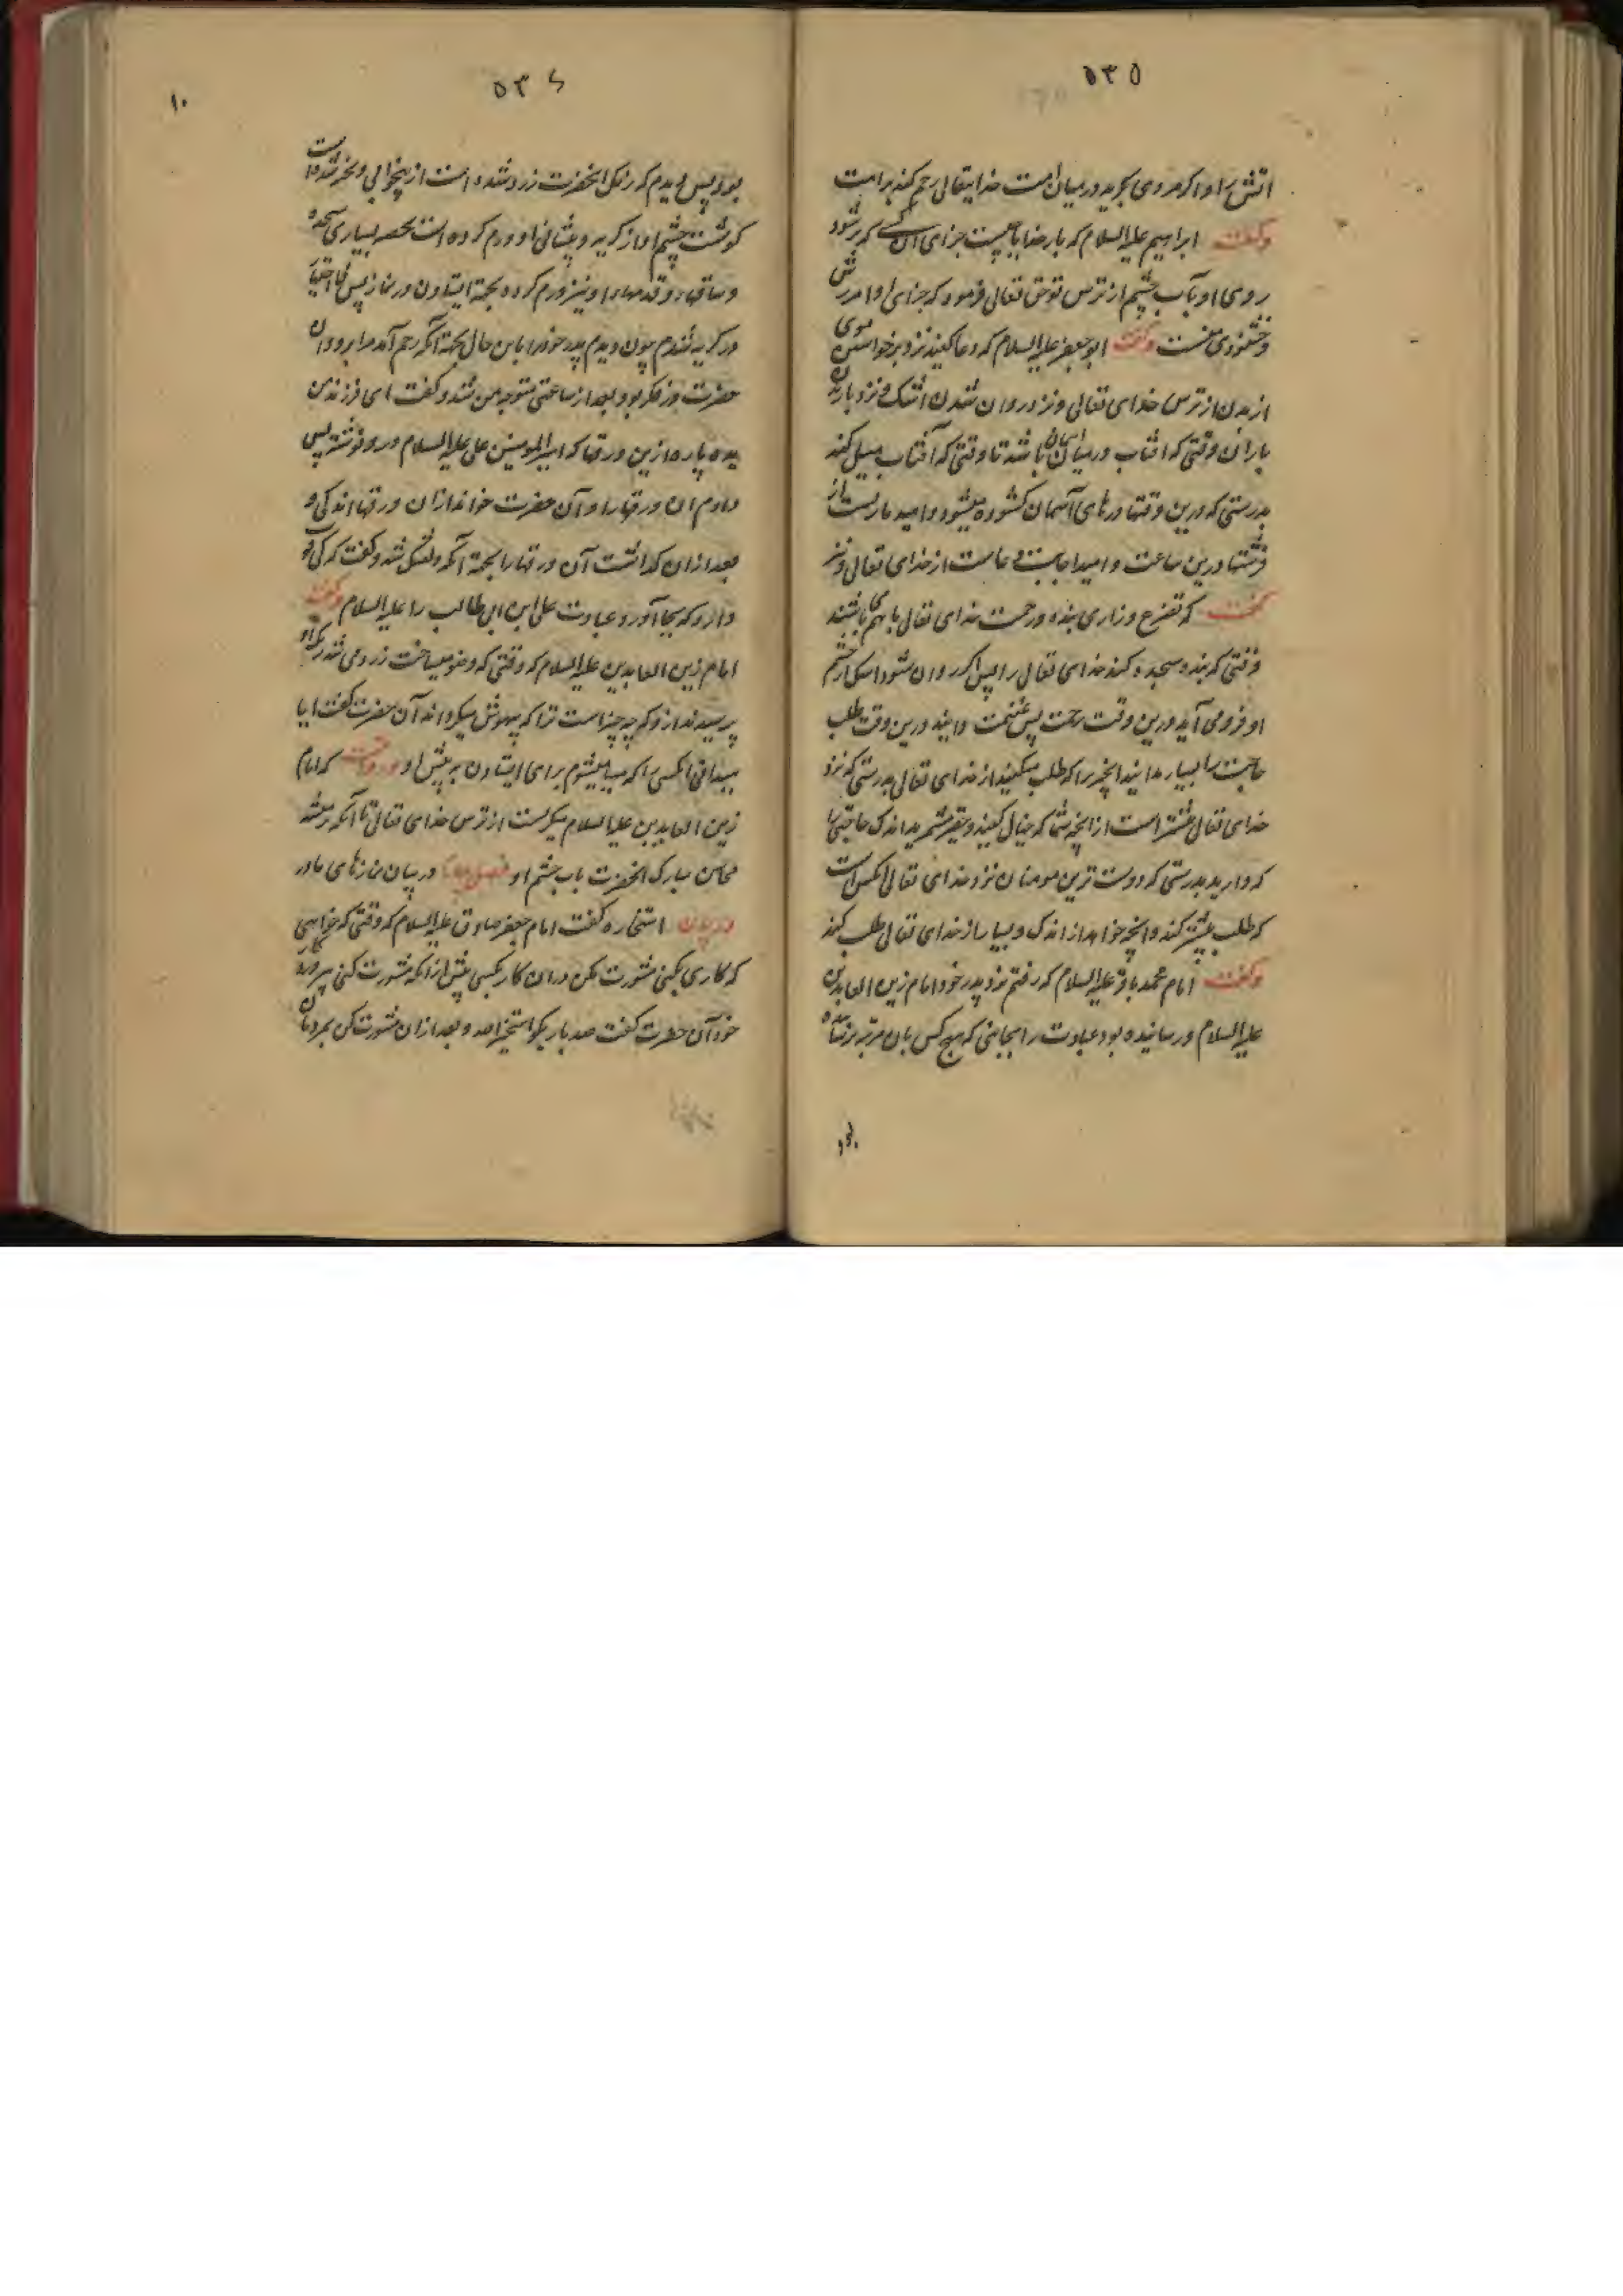 ۵۳۵
اتش را و اکر مردی بکرید در میان امت خدایتعالی رحم کند بر امت
وکفت ابراهیم علیه السلام که بار خدایا چیست جزای آن کسی که تر شود
روی او بآب چشم از ترس تو حق تعالی فرمود که جزای او آمرزش
و خشنودی منست وکفت ابو جعفر علیه السلام که دعا کنید نزد برخواستن موی
از بدن از ترس خدای تعالی و نزد روان شدن اشک و نزد باریدن
باران وقتی که افتاب در میان آسمان باشد تا وقتی که آفتاب میل کند
بدرستی که درین وقتها درهای آسمان کشوده میشود و امید
فرشتها درین ساعت و امید اجابت دعاست از خدای تعالی و نیز
کفت که تضرع و زاری بنده و رحمت خدای تعالی با هم باشند
وقتی که بنده سجده کند خدای تعالی را پس اکر روان شود اشک از چشم
او فرو می آید درین وقت رحمت پس غنیمت دانید درین وقت طلب
حاجت را بسیار مدانید انچیز را که طلب میکنید از خدای تعالی بدرستی که نزد
خدای تعالی بیشتر است از انچه شما که خیال کنید و حقیر مشمرید اندک حاجتی را
که دارید بدرستی که دوست ترین مومنان نزد خدای تعالی انکس است
که طلب بیشتر کند و انچه خواهد از اندک و بسیار از خدای تعالی طلب کند
وکفت امام محمد باقر علیه السلام که رفتم نزد پدر خود امام زین العابدین
علیه السلام و رسانیده بود عبادت را بجایی که هیچ کس بان مرتبه نرسانده
۵۳۶
۱۰
بود پس دیدم که رنک انحضرت زرد شده است از بیخوابی و
کوشت چشم او از کریه و پیشانی او ورم کرده است بسیاری سجده
و ساقها و قدمهای او نیز ورم کرده بجهة ایستادن در نماز پس بی اختیار
در کریه شدم چون دیدم پدر خود را باین حال بجهة آنکه رحم آمد مرا برو و ان
حضرت در فکر بود بعد از ساعتی متوجه من شد و کفت ای فرزند من
بده پاره ازین ورقها که امیرالمومنین علی علیه السلام درو نوشته پس
دادم ان ورقها را و آن حضرت خواند از ان ورقها اندکی و
بعد از ان کذاشت آن ورقها را بجهة آنکه دلتنک شد و کفت که کی قوت
دارد که بجا آورد عبادت علی ابن ابی طالب را علیه السلام وکفت
امام زین العابدین علیه السلام که وقتی که وضو میساخت زرد می شد رنک او
پرسیدند ازو که چه چیز است ترا که بیهوش میکرداند آن حضرت کفت ایا
میدانی انکسی را که مهیا میشوم برای ایستادن به پیش او که امام
زین العابدین علیه السلام میکریست از ترس خدای تعالی تا آنکه تر میشد
محاسن مبارک انحضرت باب چشم او فصل در بیان نمازهای
در بیان استخاره کفت امام جعفر صادق علیه السلام که وقتی که خواهی
که کاری بکنی مشورت مکن در ان کار بکسی پیش از انکه مشورت کنی به پروردکار
خود آن حضرت کفت صد بار بکو استخیر الله و بعد از ان مشورت کن بمردمان